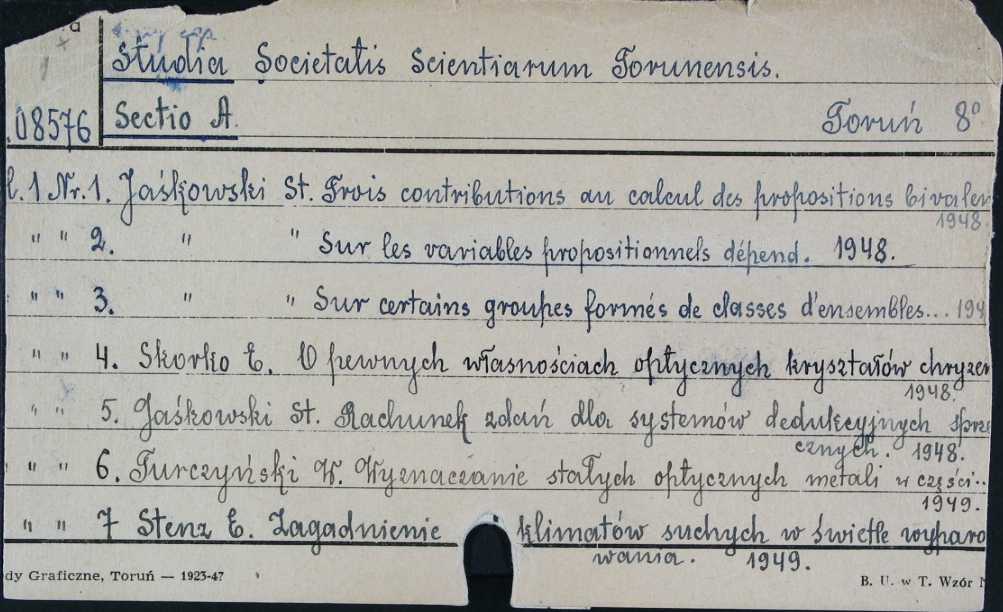 Studia Societatis Scientiarum Torunensis.
08576 Sectio A. Toruń 8°
1 Nr. 1. Jaśkowski St. Trois contributions au calcul des propositions bivalen
1948.
" " 2. " " Sur les variables propositionnels dépend. 1948.
" " 3. " " Sur certains groupes formés de classes d'ensembles... 194
" " 4. Skorko E. O pewnych własnościach optycznych kryształów chryzen
1948.
" " 5. Jaśkowski St. Rachunek zdań dla systemów dedukcyjnych sprze
cznych. 1948.
" " 6. Turczyński W. Wyznaczanie stałych optycznych metali w części..
1949.
" " 7 Stenz E. Zagadnienie klimatów suchych w świetle wyparo
wania. 1949.
dy Graficzne, Toruń — 1923-47 B. U. w T. Wzór